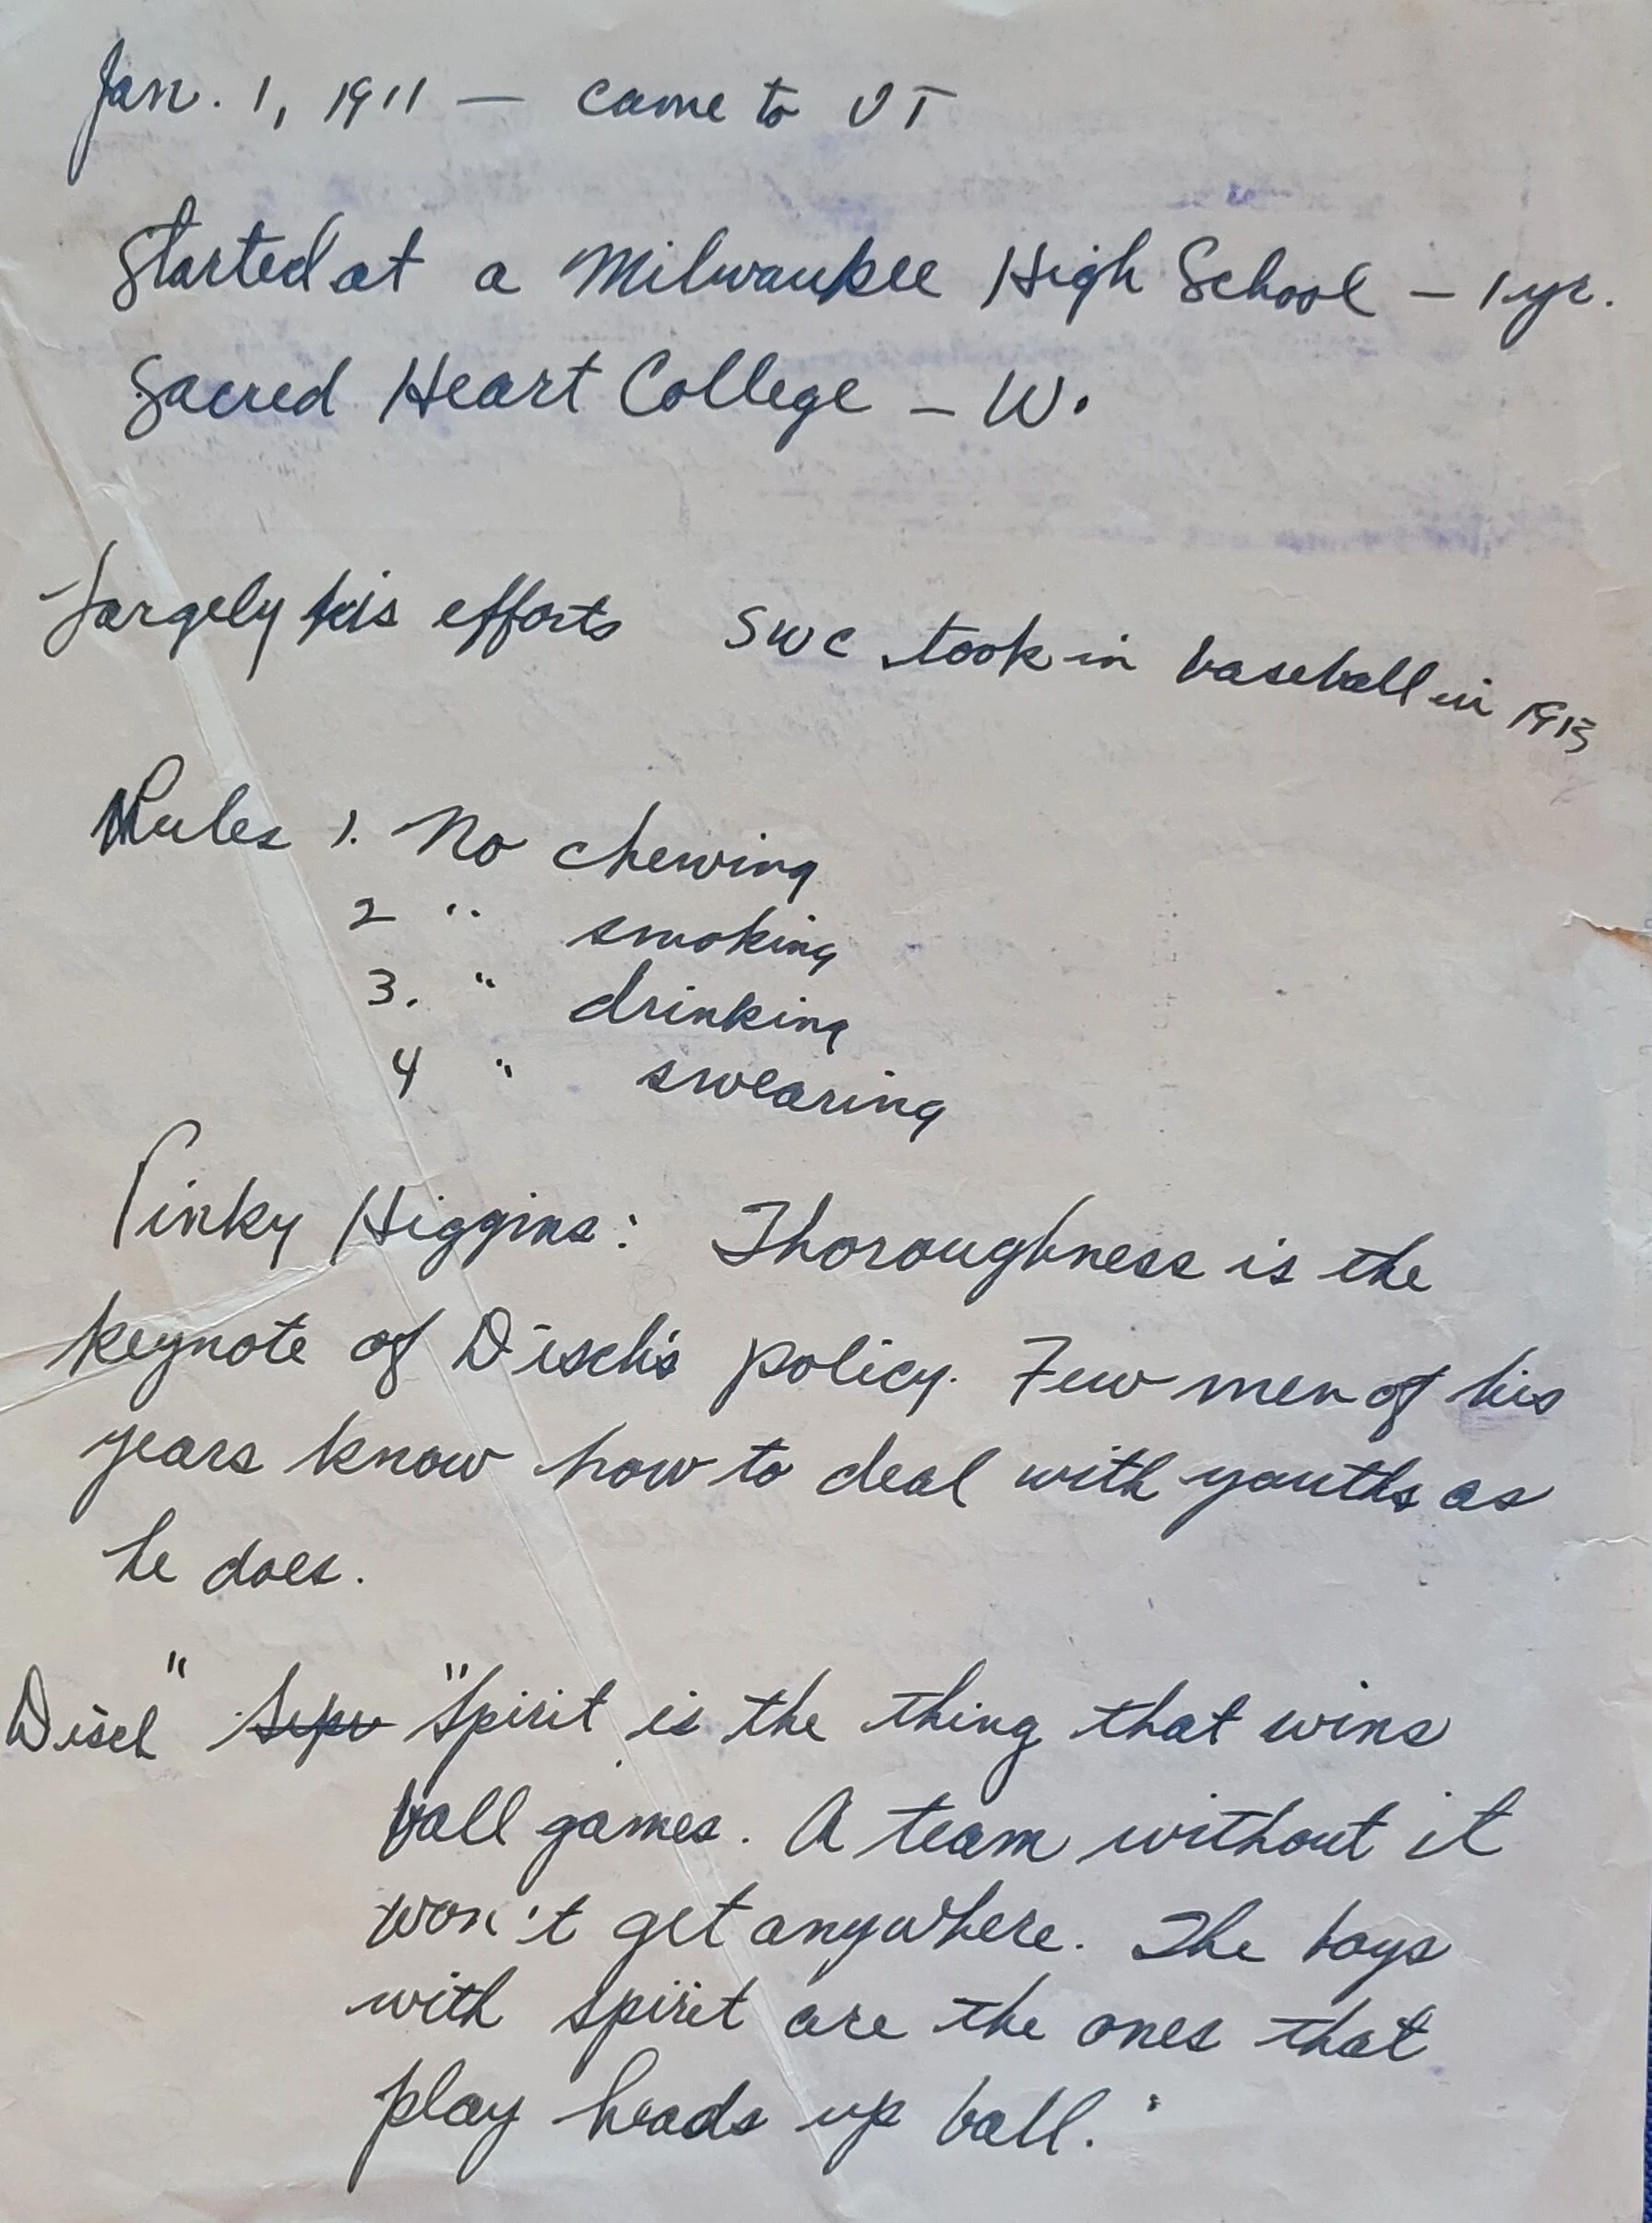 Jan. 1, 1911 — came to UT
Started at a Milwaukee High School – 1 yr.
Sacred Heart College – W.
Largely his efforts SWC took in baseball in 1915
Rules 1. No chewing
2 " smoking
3. " drinking
4 " swearing
Pinky Higgins: Thoroughness is the
keynote of Disch's policy. Few men of his
years know how to deal with youths as
he does.
Disch " "Spirit is the thing that wins
ball games. A team without it
won't get anywhere. The boys
with spirit are the ones that
play heads up ball."